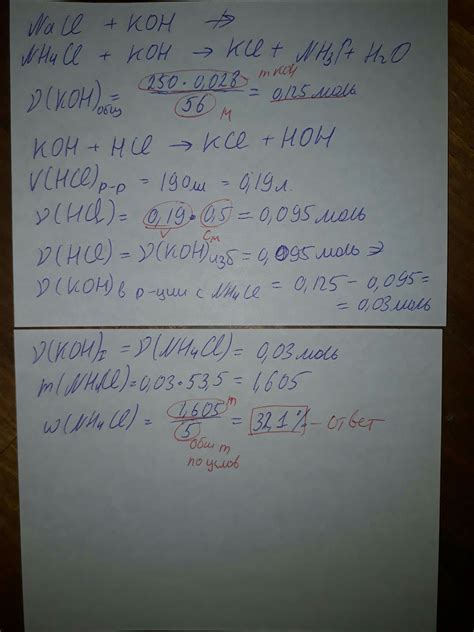 NaCl + KOH ↛
NH4Cl + KOH → KCl + NH3↑ + H2O
ν(KOH)общ = 250 · 0,028 / 56 = 0,125 моль
m KOH
M
KOH + HCl → KCl + HOH
V(HCl)р-р = 190 мл = 0,19 л.
ν(HCl) = 0,19 · 0,5 = 0,095 моль
V См
ν(HCl) = ν(KOH)изб = 0,095 моль ⇒
ν(KOH) в р-ции с NH4Cl = 0,125 − 0,095 =
= 0,03 моль
ν(KOH)I = ν(NH4Cl) = 0,03 моль
m(NH4Cl) = 0,03 · 53,5 = 1,605
ω(NH4Cl) = 1,605 / 5 = 32,1 % - ответ
m
общ m
по услов